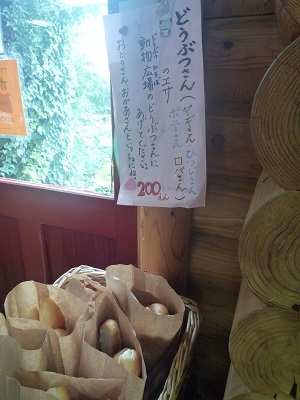 どうぶつさん(ヤギさん ひつじさん
ポニーさん ロバさん)
のエサ
動物広場のどうぶつさんに
どうぶつ ひろば
あげてください。
おとうさん、おかあさんといっしょにね
200えん